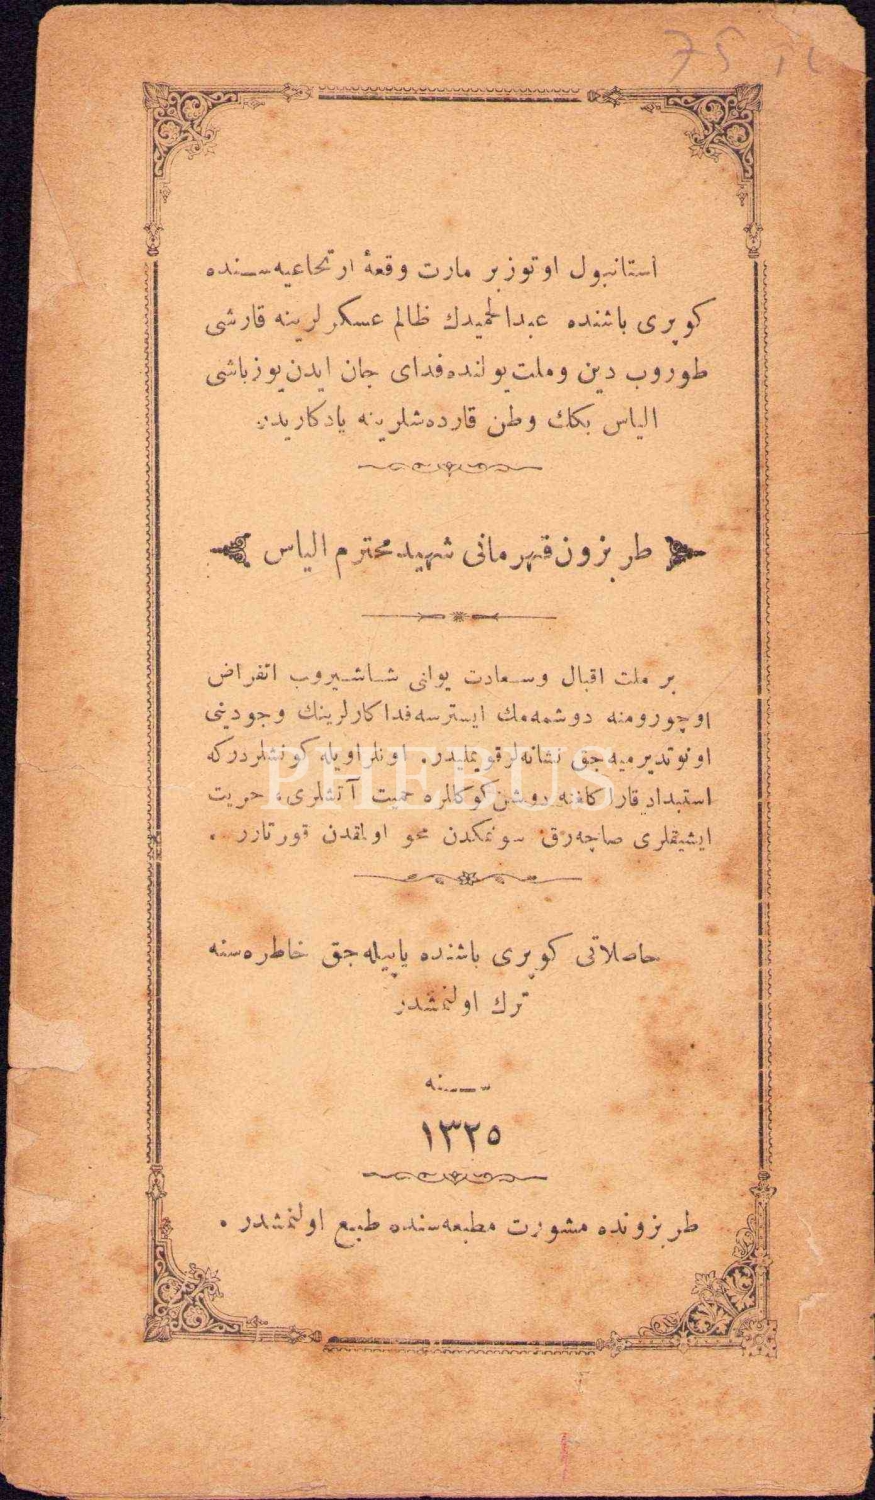 استانبول اوتوز بر مارت وقعهٔ ارتجاعیه‌سنده
كوپری باشنده عبدالحمیدك ظالم عسكرلرینه قارشی
طوروب دین وملت یولنده فدای جان ایدن یوزباشی
الیاس بكك وطن قارده‌شلرینه یادكاریدر.
طربزون قهرمانی شهید محترم الیاس
بر ملت اقبال وسعادت یولنی شاشیروب انقراض
اوچورومنه دوشمه‌مك ایسترسه فداكارلرینك وجودینی
اونوتدیرمیه‌جق نشانه‌لر قویملیدر. اونلر اویله كونشلردركه
استبداد قارا كلغنه دوشن كوكللره حمیت آتشلری، حریت
ایشیقلری صاچه‌رق سونمكدن محو اولمقدن قورتارر .
حاصلاتی كوپری باشنده یاپیله‌جق خاطره‌سنه
ترك اولنمشدر
سنه
١٣٢٥
طربزونده مشورت مطبعه‌سنده طبع اولنمشدر .
PHEBUS